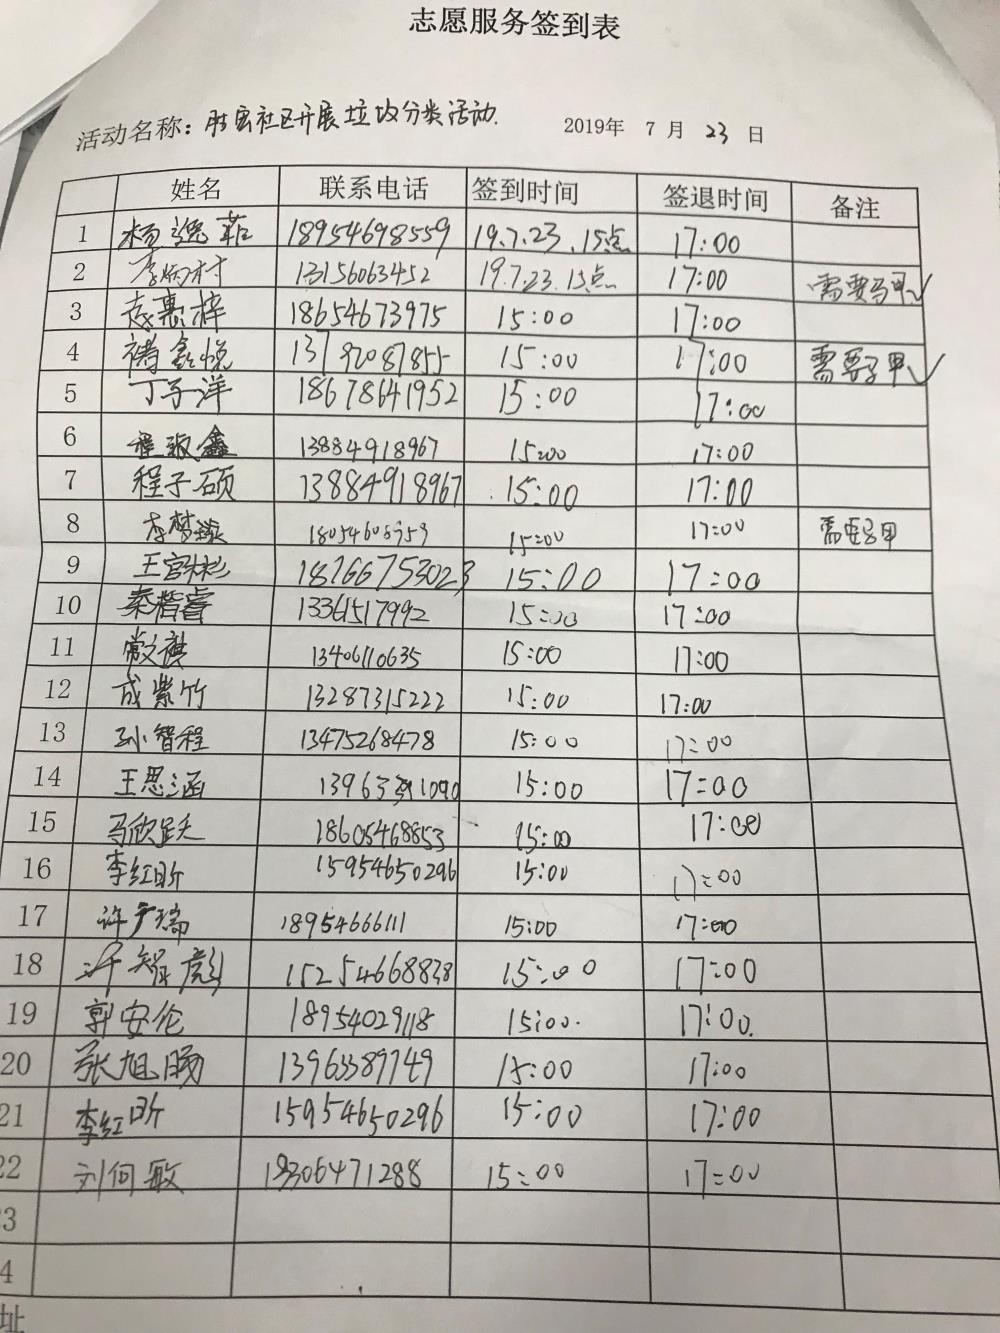 志愿服务签到表
活动名称：胜宏社区开展垃圾分类活动. 2019年 7 月 23 日
姓名 联系电话 签到时间 签退时间 备注
1 杨逸菲 18954698559 19.7.23.15点 17:00
2 李炳村 13156063452 19.7.23.15点 17:00 需要马甲✓
3 袁惠梓 18654673975 15:00 17:00
4 褚鑫悦 13792087855 15:00 17:00 需要马甲✓
5 丁子洋 18678641952 15:00 17:00
6 程政鑫 13884918967 15:00 17:00
7 程子硕 13884918967 15:00 17:00
8 李梦璇 15:00 17:00 需要马甲
9 王宫彬 18766753023 15:00 17:00
10 秦楷睿 13361517992 15:00 17:00
11 祺 13406110635 15:00 17:00
12 成紫竹 13287315222 15:00 17:00
13 孙智程 13475268478 15:00 17:00
14 王思涵 15:00 17:00
15 马欣跃 18605468853 15:00 17:00
16 李红昕 15954650296 15:00 17:00
17 许广瑞 18954666111 15:00 17:00
18 许智彪 15254668838 15:00 17:00
19 郭安伦 18954029118 15:00. 17:00.
20 张旭旸 13963389749 15:00 17:00
21 李红昕 15954650296 15:00 17:00
22 刘向敏 15:00 17:00
3
4
址